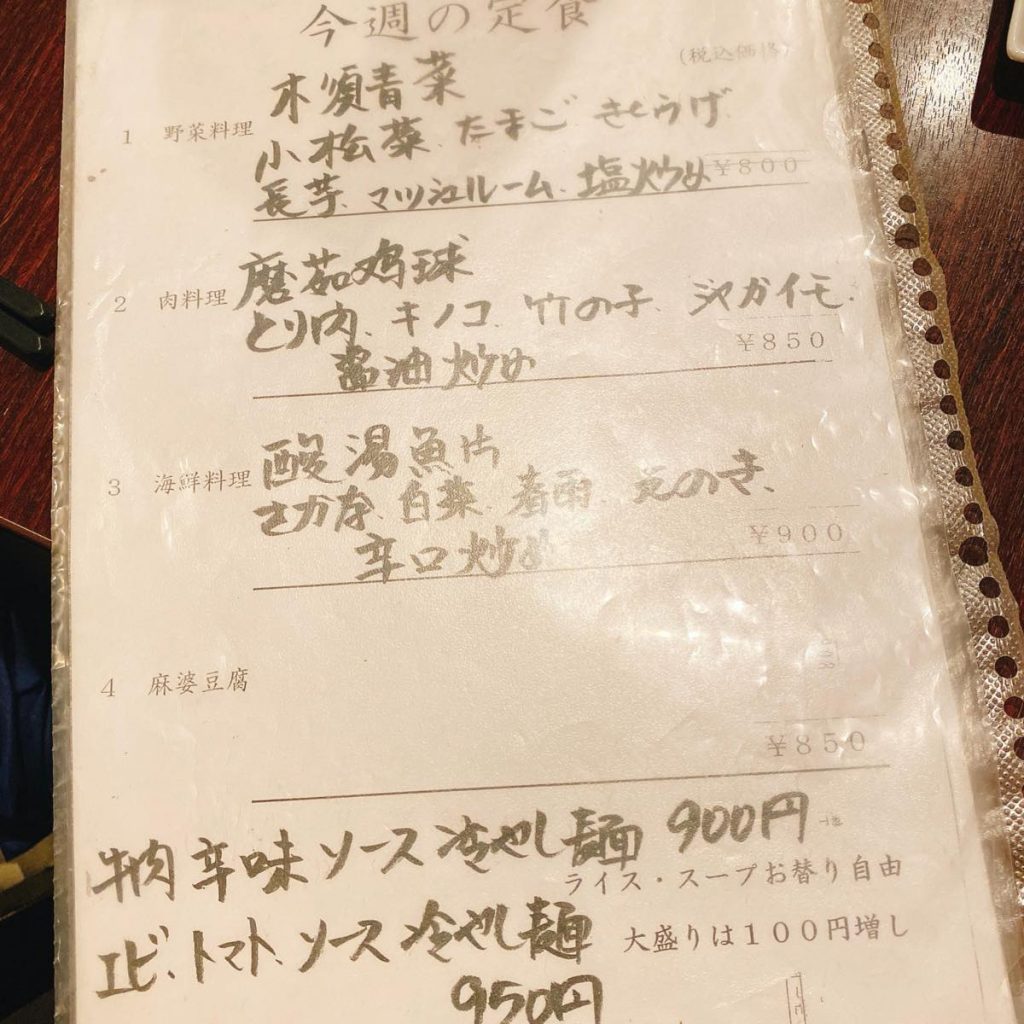 今週の定食
(税込価格)
木須青菜
1 野菜料理
小松菜、たまご きくらげ
長芋、マッシュルーム、塩炒め ¥800
磨茹鸡球
2 肉料理
とり肉、キノコ、竹の子、ジャガイモ、
¥850
醤油炒め
酸湯魚片
3 海鮮料理
さかな、白菜、春雨、えのき、
¥900
辛口炒め
4 麻婆豆腐
¥850
牛肉辛味ソース冷やし麺 900円
ライス・スープお替り自由
エビ、トマト、ソース冷やし麺
大盛りは100円増し
950円